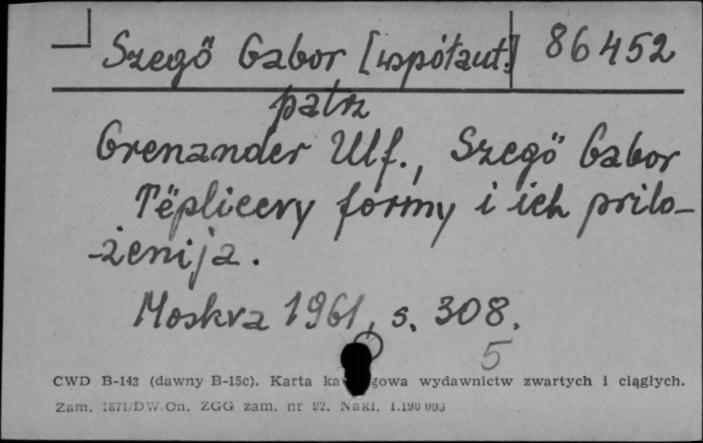 Szegő Gabor [współaut.] 86452
patrz
Grenander Ulf., Szegő Gabor
Tëplicevy formy i ich prilo-
-żenija.
Moskva 1961, s. 308.
5
CWD B-143 (dawny B-15c). Karta ka gowa wydawnictw zwartych i ciągłych.
Zam. 1871/DW/On. ZGG zam. nr 92. Nakł. 1.190 000